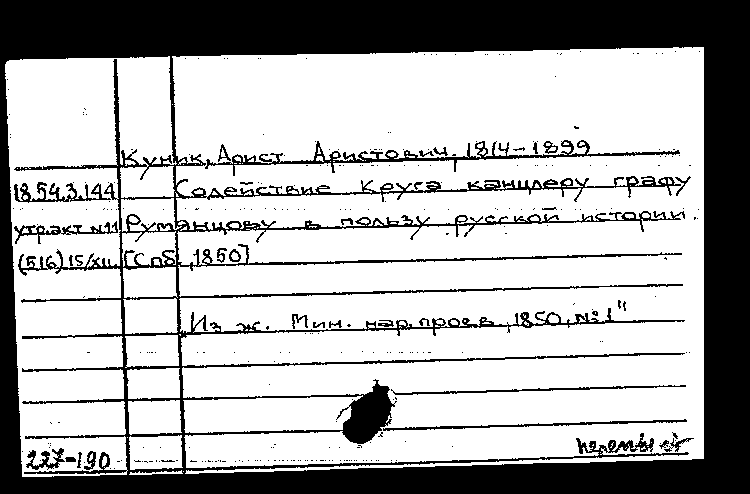 Куник, Арист Аристович, 1814-1899
18.54.3.144 Содействие Круга канцлеру графу
утр.акт №11 Румянцову в пользу русской истории.
(516) 15/XII [Спб., 1850]
"Из ж. Мин. нар. просв., 1850, №1"
227-190